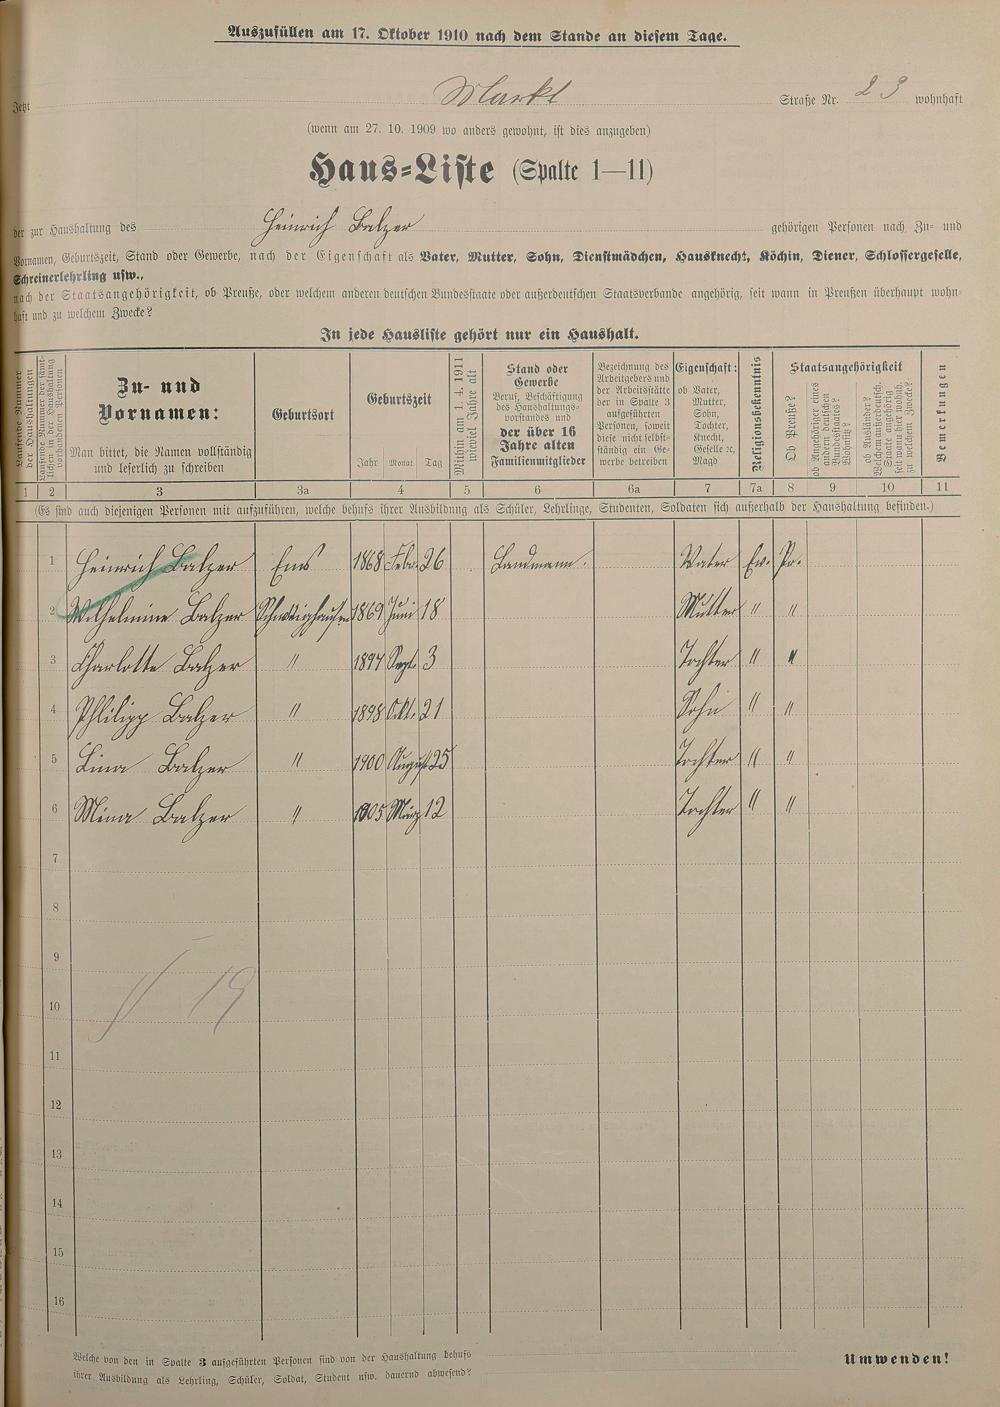 Auszufüllen am 17. Oktober 1910 nach dem Stande an diesem Tage.
Jetzt Markt Straße Nr. 23 wohnhaft
(wenn am 27. 10. 1909 wo anders gewohnt, ist dies anzugeben)
Haus-Liste (Spalte 1—11)
der zur Haushaltung des Heinrich Balzer gehörigen Personen nach Zu- und
Vornamen, Geburtszeit, Stand oder Gewerbe, nach der Eigenschaft als Vater, Mutter, Sohn, Dienstmädchen, Hausknecht, Köchin, Diener, Schlossergeselle,
Schreinerlehrling usw.,
nach der Staatsangehörigkeit, ob Preuße, oder welchem anderen deutschen Bundesstaate oder außerdeutschen Staatsverbande angehörig, seit wann in Preußen überhaupt wohn-
haft und zu welchem Zwecke?
In jede Hausliste gehört nur ein Haushalt.
Laufende Nummer der Haushaltungen
Laufende Nummer der sämt-
lichen in der Haushaltung
vorhandenen Personen
Zu- und
Vornamen:
Man bittet, die Namen vollständig
und leserlich zu schreiben
Geburtsort
Geburtszeit
Jahr Monat Tag
Mithin am 1. 4. 1911
wieviel Jahre alt
Stand oder
Gewerbe
Beruf, Beschäftigung
des Haushaltungs-
vorstandes und
der über 16
Jahre alten
Familienmitglieder
Bezeichnung des
Arbeitgebers und
der Arbeitsstätte
der in Spalte 3
aufgeführten
Personen, soweit
diese nicht selbst-
ständig ein Ge-
werbe betreiben
Eigenschaft:
ob Vater,
Mutter,
Sohn,
Tochter,
Knecht,
Geselle ꝛc,
Magd
Religionsbekenntnis
Staatsangehörigkeit
Ob Preuße?
ob Angehöriger eines
andern deutschen
Bundesstaates?
Wohnsitz?
ob Ausländer?
Welchem außerdeutsch.
Staate angehörig
seit wann hier wohnh.
zu welchem Zwecke?
Bemerkungen
1 2 3 3a 4 5 6 6a 7 7a 8 9 10 11
(Es sind auch diejenigen Personen mit aufzuführen, welche behufs ihrer Ausbildung als Schüler, Lehrlinge, Studenten, Soldaten sich außerhalb der Haushaltung befinden.)
1 Heinrich Balzer Ems 1868 Febr. 26 Landmann. Vater Ev. Pr.
2 Wilhelmine Balzer Schweighausen 1869 Juni 18 Mutter " "
3 Charlotte Balzer " 1897 Sept. 3 Tochter " "
4 Phlilipp Balzer " 1898 Okt. 21 Sohn " "
5 Lina Balzer " 1900 August 25 Tochter " "
6 Mina Balzer " 1905 März 12 Tochter " "
7
8
9
10 19
11
12
13
14
15
16
Welche von den in Spalte 3 aufgeführten Personen sind von der Haushaltung behufs
ihrer Ausbildung als Lehrling, Schüler, Soldat, Student usw. dauernd abwesend?
Umwenden!